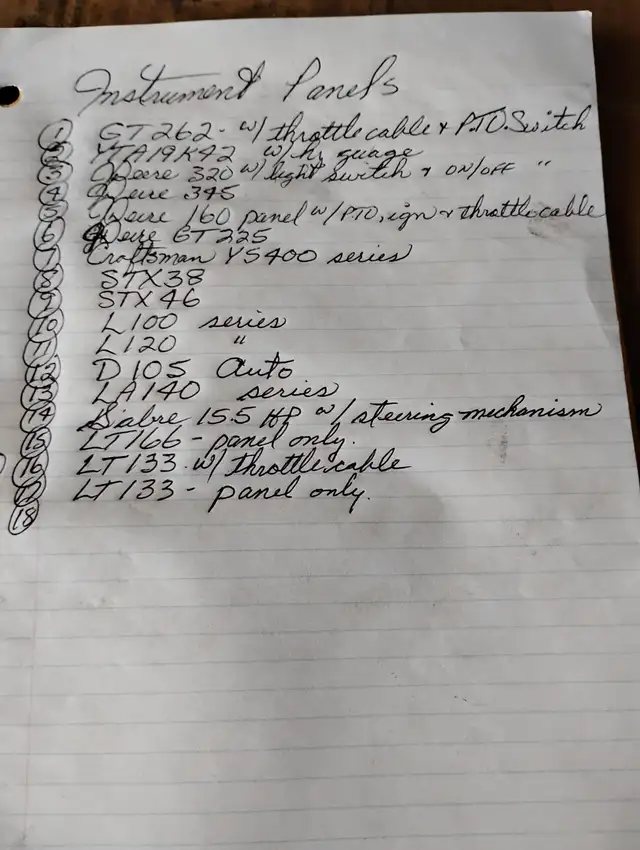 Instrument Panels
1 GT262 - w/ throttle cable & P.T.O. Switch
2 YTA19K42 w/ hr guage
3 Deere 320 w/ light switch & ON/OFF "
4 Deere 345
5 Deere 160 panel w/ PTO, ign & throttle cable
6 Deere GT225
7 Craftsman YS400 series
8 STX38
9 STX46
10 L100 series
11 L120 "
12 D105 Auto
13 LA140 series
14 Sabre 15.5 HP w/ steering mechanism
15 LT166 - panel only.
16 LT133 w/ throttle cable
17 LT133 - panel only.
18